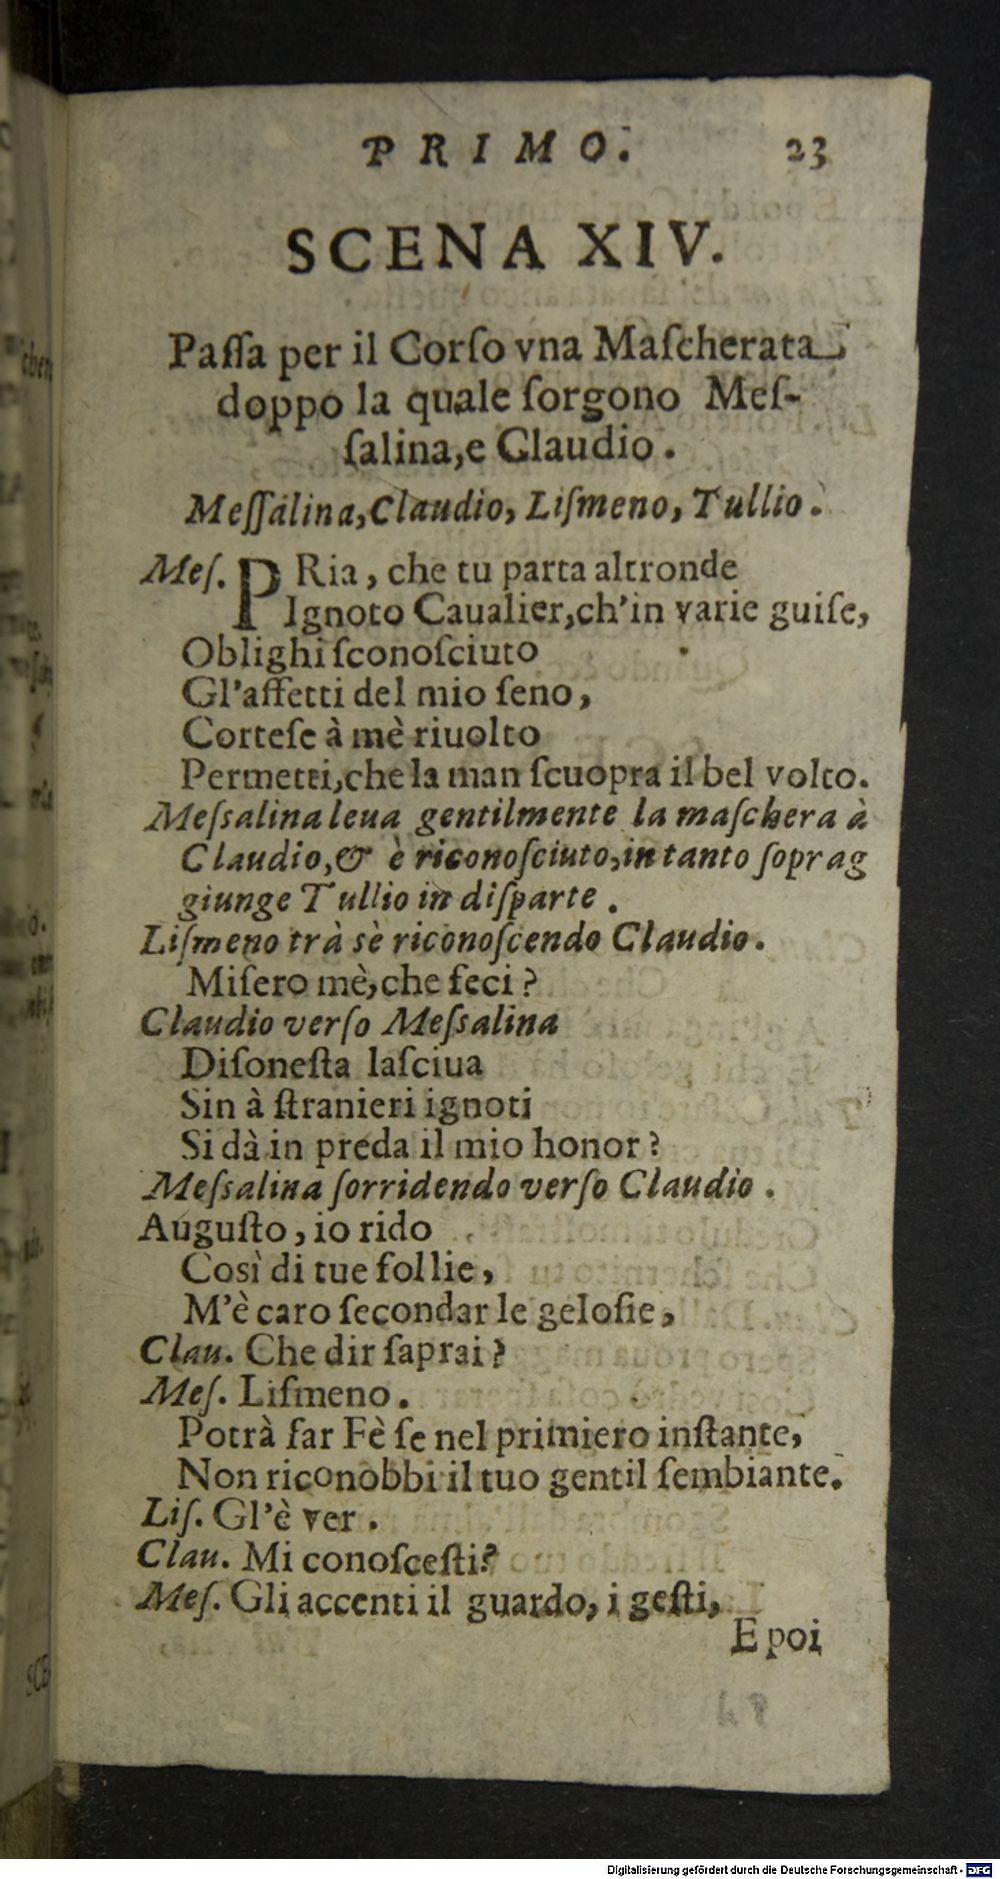 PRIMO. 23
SCENA XIV.
Paſſa per il Corſo vna Maſcherata
doppo la quale ſorgono Meſ-
ſalina,e Claudio.
Meſſalina,Claudio, Liſmeno, Tullio.
Meſ. PRia, che tu parta altronde
Ignoto Caualier,ch'in varie guiſe,
Oblighi ſconoſciuto
Gl'affetti del mio ſeno,
Corteſe à mè riuolto
Permetti,che la man ſcuopra il bel volto.
Meſsalina leua gentilmente la maſchera à
Claudio,& è riconoſciuto,in tanto ſoprag
giunge Tullio in diſparte.
Liſmeno trà sè riconoſcendo Claudio.
Miſero mè,che feci?
Claudio verſo Meſsalina
Diſoneſta laſciua
Sin à ſtranieri ignoti
Si dà in preda il mio honor?
Meſsalina ſorridendo verſo Claudio.
Auguſto, io rido
Così di tue follie,
M'è caro ſecondar le geloſie,
Clau. Che dir ſaprai?
Meſ. Liſmeno.
Potrà far Fè ſe nel primiero inſtante,
Non riconobbi il tuo gentil ſembiante.
Liſ. Gl'è ver.
Clau. Mi conoſceſti?
Meſ. Gli accenti il guardo, i geſti,
E poi
Digitalisierung gefördert durch die Deutsche Forschungsgemeinschaft - DFG